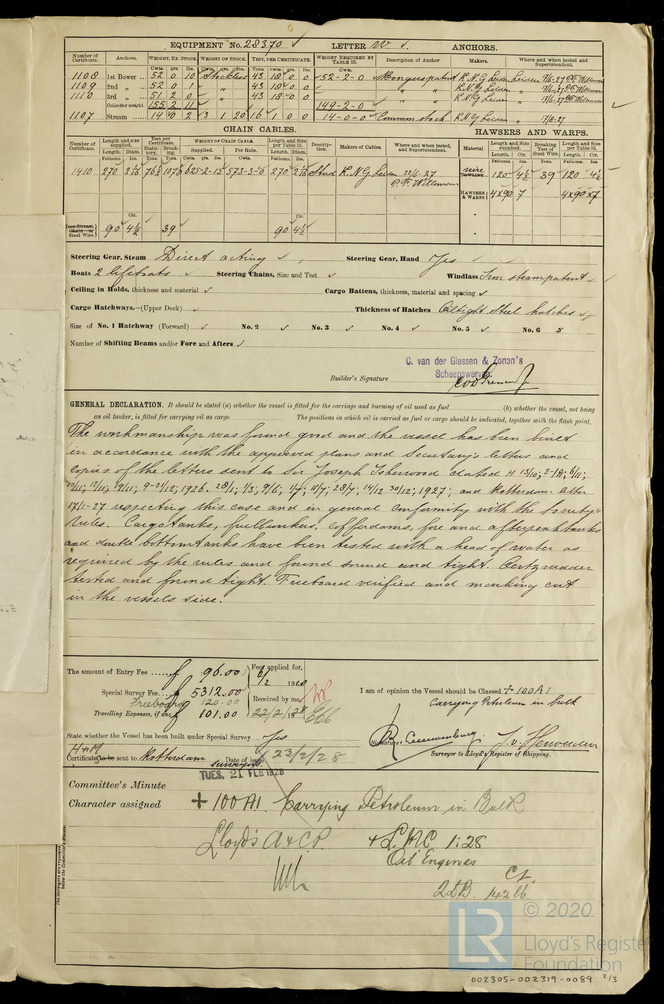 EQUIPMENT No. 28370 LETTER W ANCHORS.
Number of Certificate. Anchors. WEIGHT, EX. STOCK. WEIGHT OF STOCK. TEST, PER CERTIFICATE. WEIGHT REQUIRED BY TABLE 53. Description of Anchor Makers. Where and when tested and Superintendent.
1108 1st Bower 52 0 10 Stockless 43 18 0 0 52-2-0 K.N.G. Leiden Leiden
1109 2nd „ 52 0 1 „ 43 18 0 0 „ K.N.G. Leiden
1110 3rd „ 51 2 0 „ 43 18 0 0 „ K.N.G. Leiden
Collective weight. 155 2 11 149-2-0
1107 Stream 14 0 2 3 1 20 16 1 0 0 14-0-0 Common stock K.N.G. Leiden
CHAIN CABLES. HAWSERS AND WARPS.
Number of Certificate. Length and size supplied. Test per Certificate. WEIGHT OF CHAIN CABLE. Length and size per Table 53. Description. Makers of Cables. Where and when tested, and Superintendent. Material. Length and Size supplied. Breaking Test of Steel Wire. Length and Size per Table 53.
1410 270 2 5/16 625-2-15 573-3-0 270 2 5/16 Stud K.N.G. Leiden wire 120 4½ 39 120 4½
HAWSERS & WARPS 4x90 7 4x90x7
Steel Wire 90 4½ 39 90 4½
Steering Gear, Steam Direct acting Steering Gear, Hand Yes
Boats 2 lifeboats Steering Chains, Size and Test Windlass Iron steam patent
Ceiling in Holds, thickness and material Cargo Battens, thickness, material and spacing
Cargo Hatchways.—(Upper Deck) Thickness of Hatches Oiltight Steel hatches
Size of No. 1 Hatchway (Forward) No. 2 No. 3 No. 4 No. 5 No. 6
Number of Shifting Beams and/or Fore and Afters
C. van der Giessen & Zonen's
Scheepswerven
Builder's Signature
GENERAL DECLARATION. It should be stated (a) whether the vessel is fitted for the carriage and burning of oil used as fuel (b) whether the vessel, not being
an oil tanker, is fitted for carrying oil as cargo The positions in which oil is carried as fuel or cargo should be indicated, together with the flash point.
The workmanship was found good and the vessel has been built
in accordance with the approved plans and Secretary's letters and
copies of the letters sent to Sir Joseph Isherwood dated H 13/10; 2-1/11; 6/11;
1926. 28/1; 1/3; 9/6; 1/7; 15/7; 28/7; 14/12 30/12; 1927; and Rotterdam letter
17/1-27 respecting this case and in general conformity with the Society's
rules. Cargotanks, fuelbunkers, cofferdams, fore and afterpeaktanks
and double bottomtanks have been tested with a head of water as
required by the rules and found sound and tight. Decks, rudder
tested and found tight. Freeboard verified and marking cut
in the vessels side.
The amount of Entry Fee f 96.00 Fee applied for,
Special Survey Fee f 5312.00
Freeboard 120.00 Received by me,
Travelling Expenses, if any f 101.00 22/2/1928
I am of opinion the Vessel should be Classed + 100 A1
Carrying Petroleum in bulk
State whether the Vessel has been built under Special Survey Yes
Surveyor to Lloyd's Register of Shipping.
Certificate to be sent to Rotterdam surveyors Date of issue 23/2/28
TUES. 21 FEB 1928
Committee's Minute
Character assigned + 100 A1. Carrying Petroleum in Bulk
Lloyd's A & C.P. + L.M.C 1.28
Oil Engines
C.L.
2 D.B. 142 lb
© 2020
LR Lloyd's Register
Foundation
002305-002319-0089 2/3